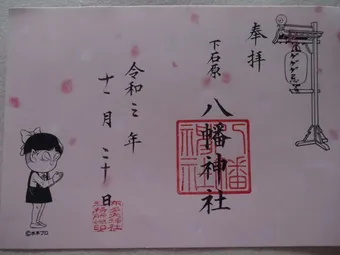 奉拝
下石原
八幡神社
令和三年
十一月二十日
八幡
神社
©水木プロ